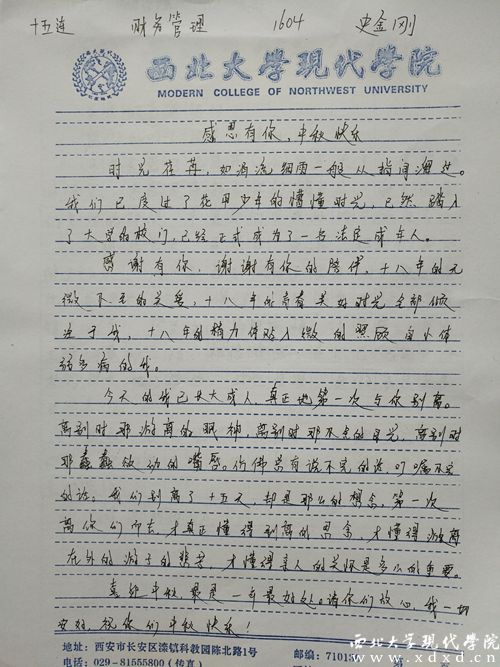 十五连 财务管理 1604 史金刚
西北大学现代学院
MODERN COLLEGE OF NORTHWEST UNIVERSITY
感恩有你,中秋快乐
时光荏苒,如涓流细雨一般从指间溜过。
我们已度过了花甲少年的懵懂时光,已然踏入
了大学的校门,已经正式成为了一名法定成年人。
感谢有你,谢谢有你的陪伴,十八年的无
微不至的关爱,十八年的青春美好时光全部倾
注于我,十八年的精力体贴入微的照顾自小体
弱多病的我。
今天的我已长大成人,真正地第一次与你别离。
离别时那游离的眼神,离别时那不舍的目光,离别时
那蠢蠢欲动的嘴唇。仿佛总有说不完的话叮嘱不完
的话。我们别离了十五天,却是那么的想念,第一次
离你们而去,才真正懂得别离的思念,才懂得游离
在外的游子的悲苦,才懂得亲人的关怀是多么的重要。
喜迎中秋最是一年最好处。请你们放心,我一切
安好,祝你们中秋快乐!
地址:西安市长安区滦镇科教园陈北路1号 邮编:71013
电话:029-81555800(传真)
西北大学现代学院
www.xdxd.cn